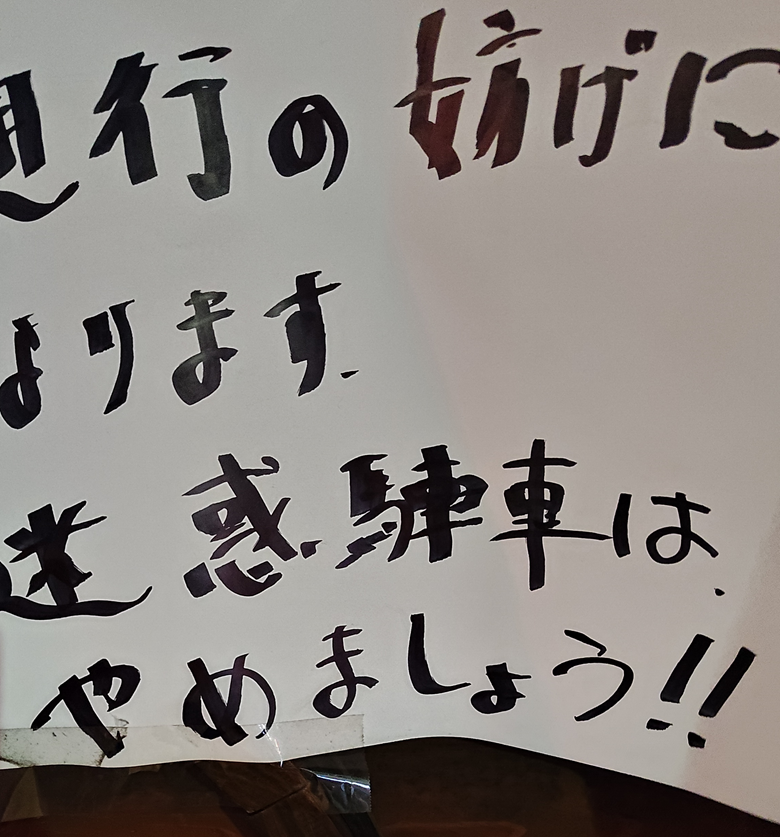 通行の妨げに
なります.
迷惑駐車は.
やめましょう!!